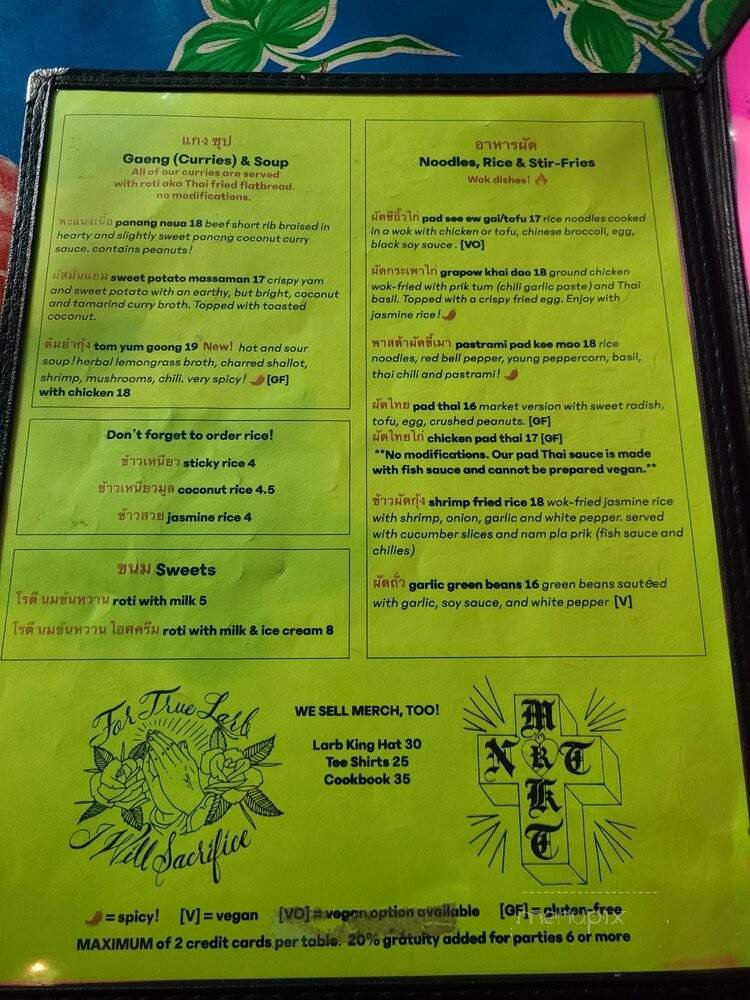 แกง ซุป
Gaeng (Curries) & Soup
All of our curries are served
with roti aka Thai fried flatbread.
no modifications.
พะแนงเนื้อ panang neua 18 beef short rib braised in
hearty and slightly sweet panang coconut curry
sauce. contains peanuts!
มัสมั่นแยม sweet potato massaman 17 crispy yam
and sweet potato with an earthy, but bright, coconut
and tamarind curry broth. Topped with toasted
coconut.
ต้มยำกุ้ง tom yum goong 19 New! hot and sour
soup! herbal lemongrass broth, charred shallot,
shrimp, mushrooms, chili. very spicy! [GF]
with chicken 18
Don't forget to order rice!
ข้าวเหนียว sticky rice 4
ข้าวเหนียวมูล coconut rice 4.5
ข้าวสวย jasmine rice 4
ขนม Sweets
โรตี นมข้นหวาน roti with milk 5
โรตี นมข้นหวาน ไอศครีม roti with milk & ice cream 8
อาหารผัด
Noodles, Rice & Stir-Fries
Wok dishes!
ผัดซีอิ๊วไก่ pad see ew gai/tofu 17 rice noodles cooked
in a wok with chicken or tofu, chinese broccoli, egg,
black soy sauce . [VO]
ผัดกระเพาไก่ grapow khai dao 18 ground chicken
wok-fried with prik tum (chili garlic paste) and Thai
basil. Topped with a crispy fried egg. Enjoy with
jasmine rice!
พาสต้าผัดขี้เมา pastrami pad kee mao 18 rice
noodles, red bell pepper, young peppercorn, basil,
thai chili and pastrami!
ผัดไทย pad thai 16 market version with sweet radish,
tofu, egg, crushed peanuts. [GF]
ผัดไทยไก่ chicken pad thai 17 [GF]
**No modifications. Our pad Thai sauce is made
with fish sauce and cannot be prepared vegan.**
ข้าวผัดกุ้ง shrimp fried rice 18 wok-fried jasmine rice
with shrimp, onion, garlic and white pepper. served
with cucumber slices and nam pla prik (fish sauce and
chilies)
ผัดถั่ว garlic green beans 16 green beans sautéed
with garlic, soy sauce, and white pepper [V]
For True Larb
I Will Sacrifice
WE SELL MERCH, TOO!
Larb King Hat 30
Tee Shirts 25
Cookbook 35
M
N R K T
K
T
= spicy! [V] = vegan [VO] = vegan option available [GF] = gluten-free
menupix
MAXIMUM of 2 credit cards per table. 20% gratuity added for parties 6 or more